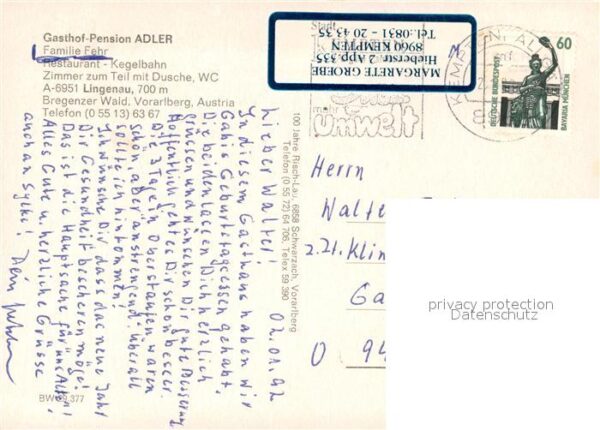 Gasthof-Pension ADLER
Familie Fehr
Restaurant - Kegelbahn
Zimmer zum Teil mit Dusche, WC
A-6951 Lingenau, 700 m
Bregenzer Wald, Vorarlberg, Austria
Telefon (0 55 13) 63 67
MARGARETE GROEBE
Hieberstr. 2 App. 335
8960 KEMPTEN
Tel. 0831 - 20 43 35
Stadt
Umwelt
60
DEUTSCHE BUNDESPOST
BAVARIA MÜNCHEN
100 Jahre Risch-Lau, 6858 Schwarzach, Vorarlberg
Telefon (0 55 72) 64 706, Telex 59 390
02.01.92
Lieber Walter!
In diesem Gasthaus haben wir
Gabis Geburtstagsessen gehabt.
Die beiden lassen Dich herzlich
grüssen und wünschen Dir gute Besserung
Hoffentlich geht es Dir schon besser.
Die 3 Tage in Oberstaufen waren
schön aber anstrengend: überall
sollte ich hinkommen!
Ich wünsche Dir dass das neue Jahr
Dir Gesundheit bescheren möge!
Das ist die Hauptsache für uns Alte!
Alles Gute u. herzliche Grüsse
auch an Sylke!
Herrn
Walte
Ga
O 94
privacy protection
Datenschutz